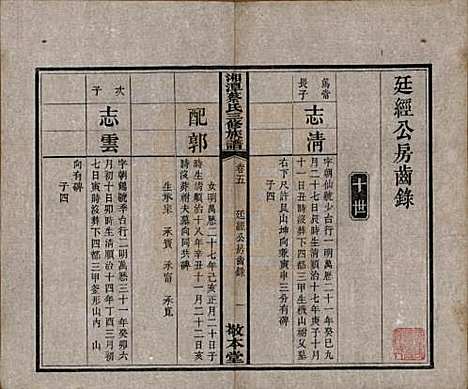 廷經公房齒錄
十世
萬當
長子
志清
字朝仙號少台行一明萬歷二十一年癸巳九
月二十七日辰時生清順治十七年庚子十月
十一日丑時沒葬下四都三甲生機山祠父墓
右下尺許艮山坤向兼寅申三分有碑
子四
配郭
女明萬歷二十七年己亥正月二十日子
時生清順治十八年辛丑十一月二十二日亥
時沒葬祔夫墓同向同共碑
生承宋 承賓 承寵
湘潭蔡氏三修族譜
卷五
廷經公房齒錄
一
敬本堂
次
子
志雲
字朝錫號季台行二明萬歷三十一年癸卯六
月初十日卯時生清順治十四年丁酉六月初
七日寅時沒葬下四都三甲釜形山內 山
向有碑
子四